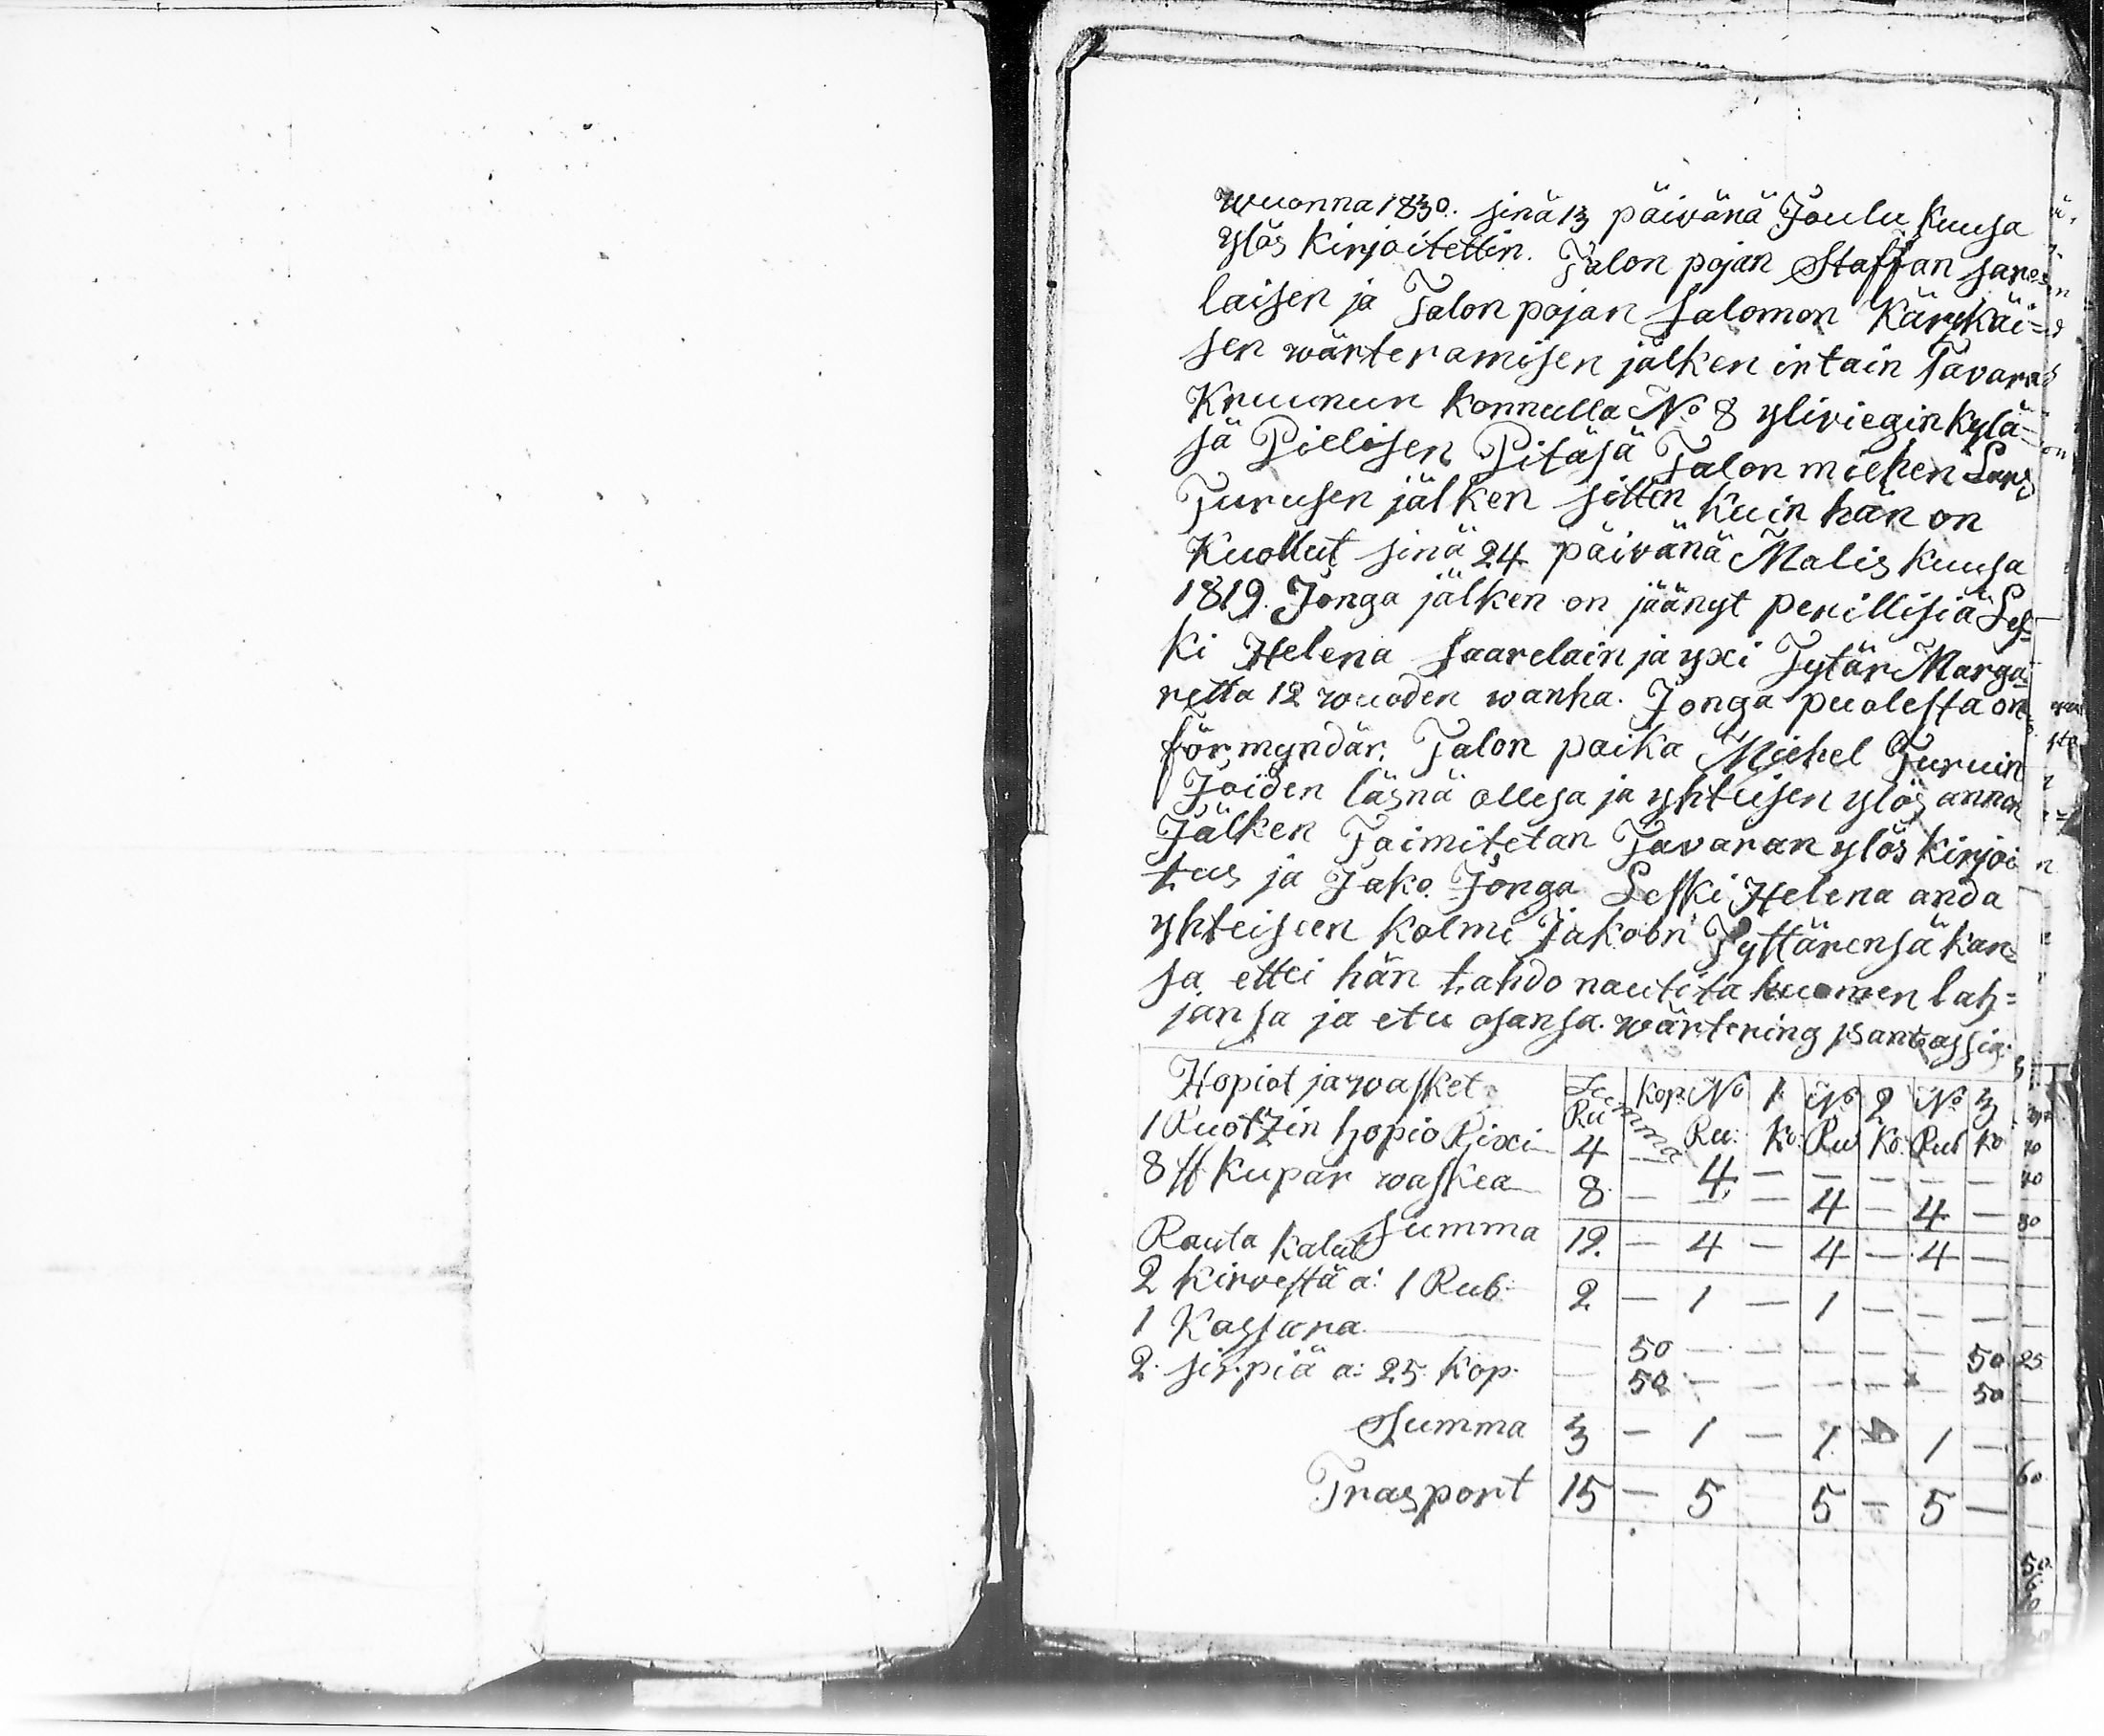 wuonna 1830. sinä 13 päivänä Joulu kuusa
ylös kirjoitettin. Talon pojan Staffan sare
laisen ja Talon pojan Salomon Kärykäi=
sen wärteramisen jälken irtain Tavarad
Kruunun konnulla No 8 yliviegin kylä=
sä Pielisen Pitäsä Talon miehen Lars
Turusen jälken sitten kuin hän on
Kuollut sinä 24 päivänä Malis kuusa
1819. Jonga jälken on jäänyt perillisiä Les=
ki Helena Saarelain ja yxi Tytär Marga=
retta 12 wuoden wanha. Jonga puolesta on
förmyndär. Talon poika Michel Turuin
Joiden läsnä ollesa ja yhteisen ylös annon
Jälken Toimitetan Tavaran ylös kirjoi
tus ja Jako. Jonga Leski Helena anda
yhteiseen kolmi Jakohn Tyttärensä kan=
sa ettei hän tahdo nautita huomen lah=
jansa ja etu osansa. wärtering
Hopiot ja wasket Summa Ru kop: No 1 No 2 No 3
Ru: Ko: Ru Ko: Rub Ko
1 Ruotzin hopio Rixi 4 — 4 — — — — —
8 ℔ kupar waskea 8 — — — 4 — 4 —
Summa 12. — 4 — 4 — 4 —
Rauta kalut
2 kirvestä a: 1 Rub: 2 — 1 — 1 — — —
1 Kassara — 50 — — — — — 50
2 sirpiä a: 25 kop. — 50 — — — — — 50
Summa 3 — 1 — 1 1 —
Trasport 15 — 5 — 5 — 5 —